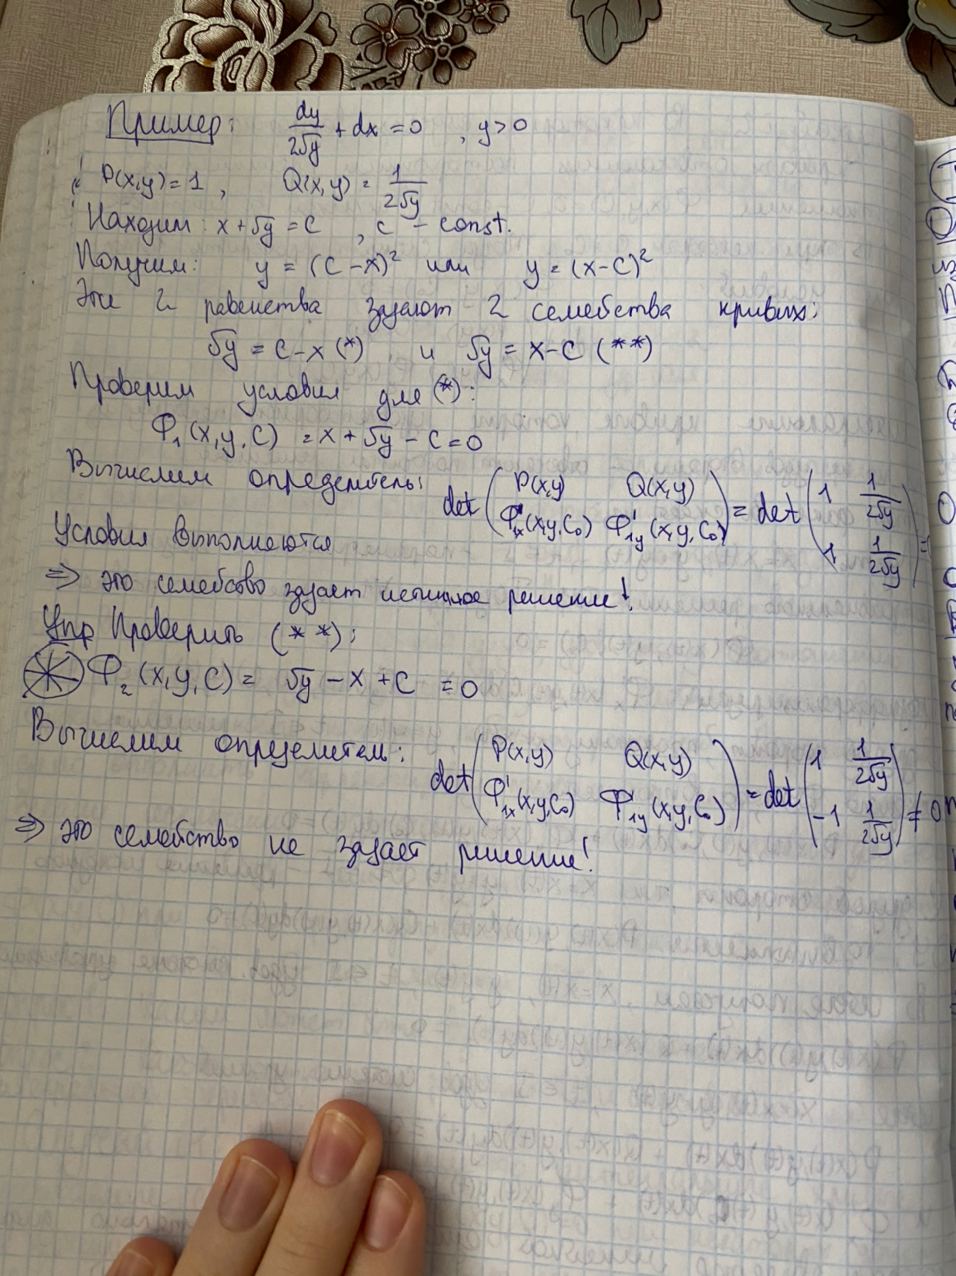 Пример: dy/2√y + dx = 0 , y>0
P(x,y)=1 , Q(x,y) = 1/2√y
Находим: x+√y = C , c - const.
Получим: y = (C-x)² или y = (x-C)²
Эти 2 равенства задают 2 семейства кривых:
√y = C-x (*) и √y = x-C (**)
Проверим условия для (*):
Φ₁(x,y,C) = x+√y - C = 0
Вычислим определитель: det( P(x,y) Q(x,y) Φ'₁ₓ(x,y,C₀) Φ'₁y(x,y,C₀) ) = det( 1 1/2√y 1 1/2√y ) =
Условия выполняются
⇒ это семейство задает истинное решение!
Упр Проверить (**):
Φ₂(x,y,C) = √y - x + C = 0
Вычислим определитель: det( P(x,y) Q(x,y) Φ'₁ₓ(x,y,C₀) Φ'₁y(x,y,C₀) ) = det( 1 1/2√y -1 1/2√y ) ≠ 0
⇒ это семейство не задает решение!